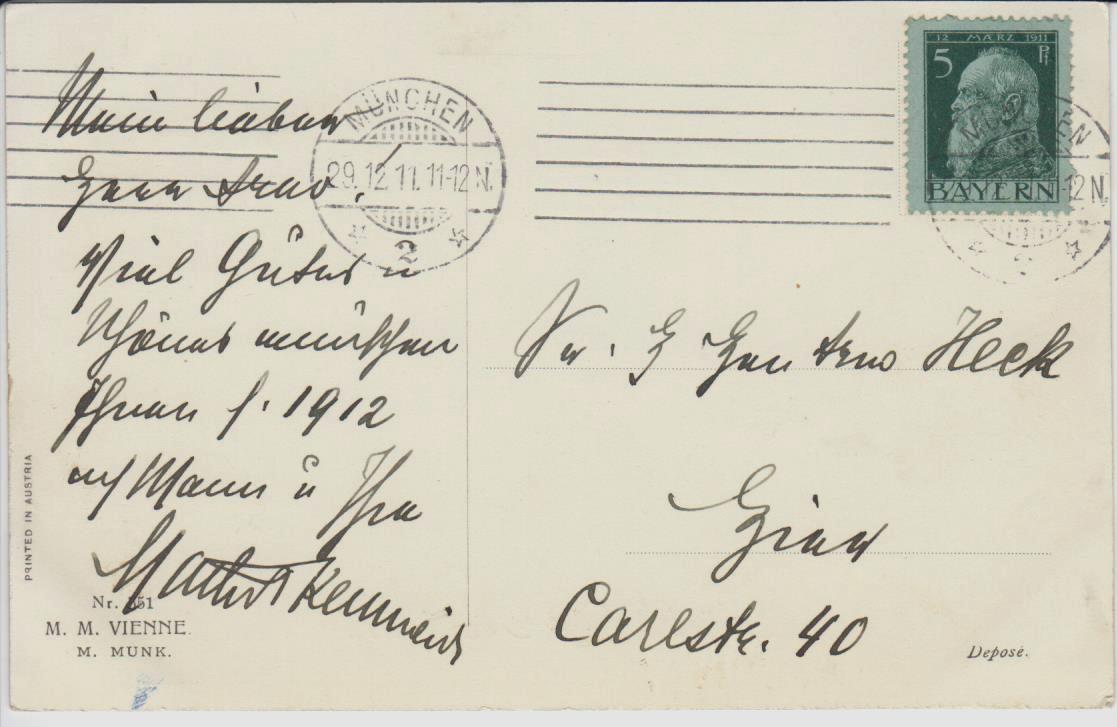 Mein lieber
Herr Arno,
Viel Gutes u
Schönes wünschen
Ihnen f. 1912
Mann u Ihre
Nr. 351
M. M. VIENNE
M. MUNK.
PRINTED IN AUSTRIA
MÜNCHEN
29.12.11.11-12 N.
2
12 MÄRZ 1911
5 Pf
BAYERN
MÜNCHEN
-12 N
Heck
Hier
Carlstr. 40
Deposé.